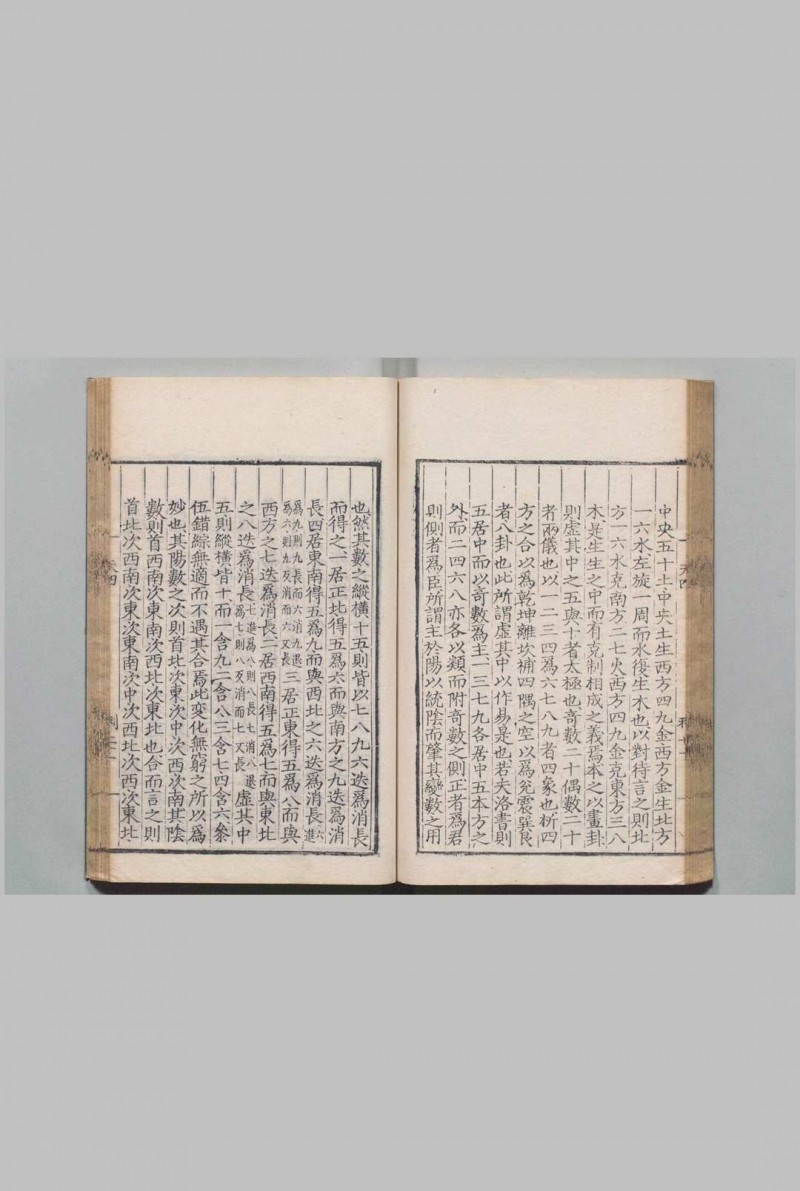 中央五十土中央土生西方四九金西方金生北方
一六水左旋一周而水復生木也以對待言之則北
方一六水克南方二七火西方四九金克東方三八
木是生生之中而有克制相成之義焉本之以畫卦
則虛其中之五與十者太極也奇數二十偶數二十
者兩儀也以一二三四爲六七八九者四象也析四
方之合以爲乾坤離坎補四隅之空以爲兌震巽艮
者八卦也此所謂虛其中以作易是也若夫洛書則
五居中而以奇數爲主一三七九各居中五本方之
外而二四六八亦各以類而附奇數之側正者爲君
則側者爲臣所謂主於陽以統陰而肇其變數之用
也然其數之縱橫十五則皆以七八九六迭爲消長
而得之一居正北得五爲六而與南方之九迭爲消
長四居東南得五爲九而與西北之六迭爲消長六進
爲九則九長而六消九退
爲六則九反消而六又長三居正東得五爲八而與
西方之七迭爲消長二居西南得五爲七而與東北
之八迭爲消長七進爲八則八長七消八退
爲七則八反消而七又長虛其中
五則縱橫皆十而一含九二含八三含七四含六參
伍錯綜無適而不遇其合焉此変化無窮之所以爲
妙也其陽數之次則首北次東次中次西次南其陰
數則首西南次東南次西北次東北也合而言之則
首北次西南次東次東南次中次西北次西次東北